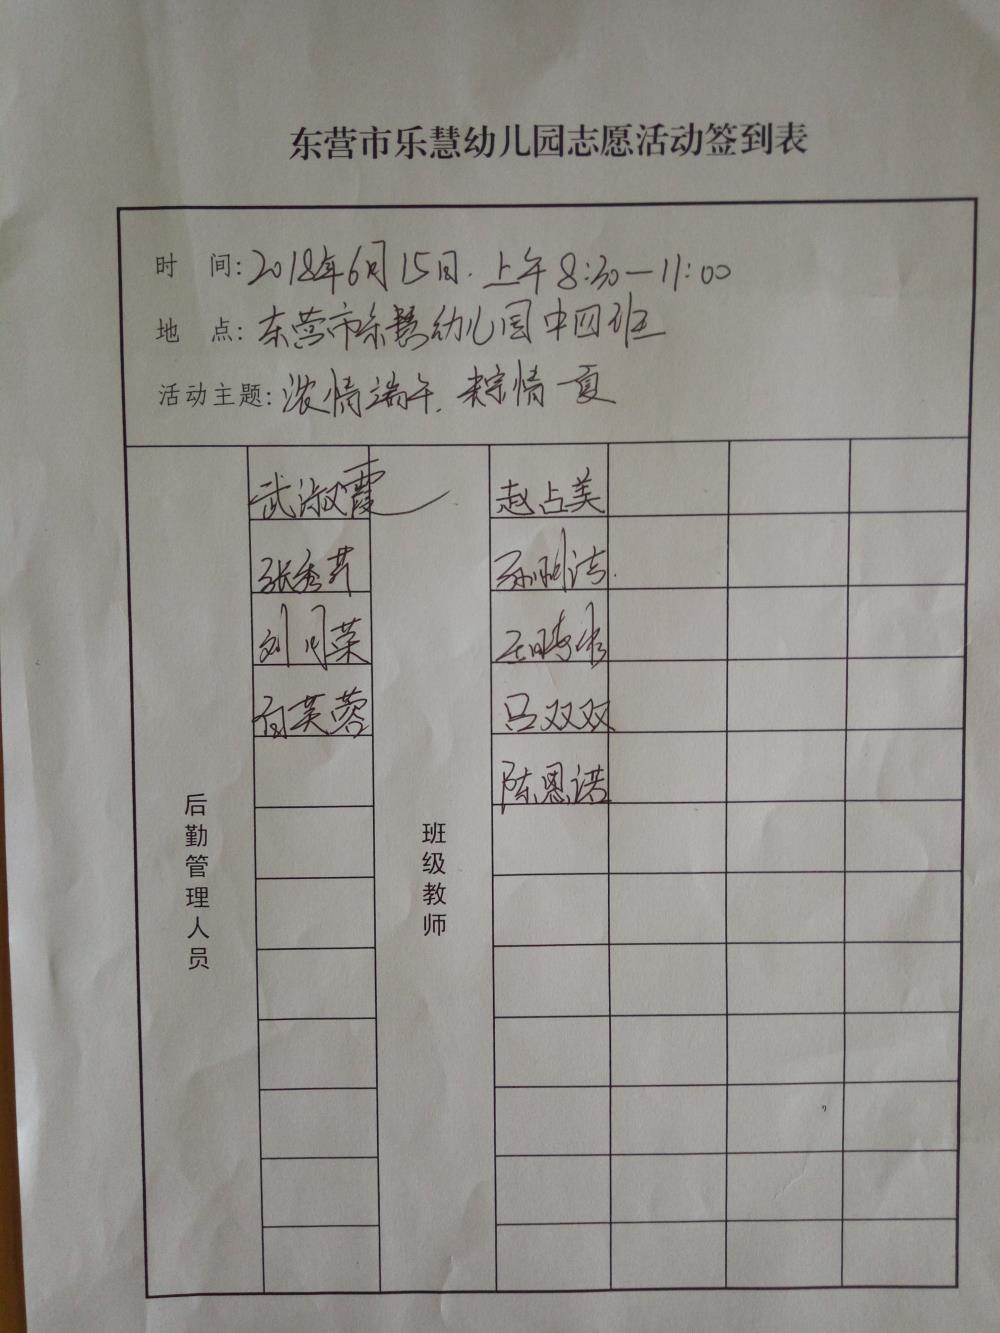 东营市乐慧幼儿园志愿活动签到表
时 间: 2018年6月15日. 上午 8:30—11:00
地 点: 东营市乐慧幼儿园中四班
活动主题: 浓情端午. 粽情一夏
后勤管理人员
武淑霞
张秀芹
刘月荣
芙蓉
班级教师
赵占美
孙明洁
吕双双
陈恩诺